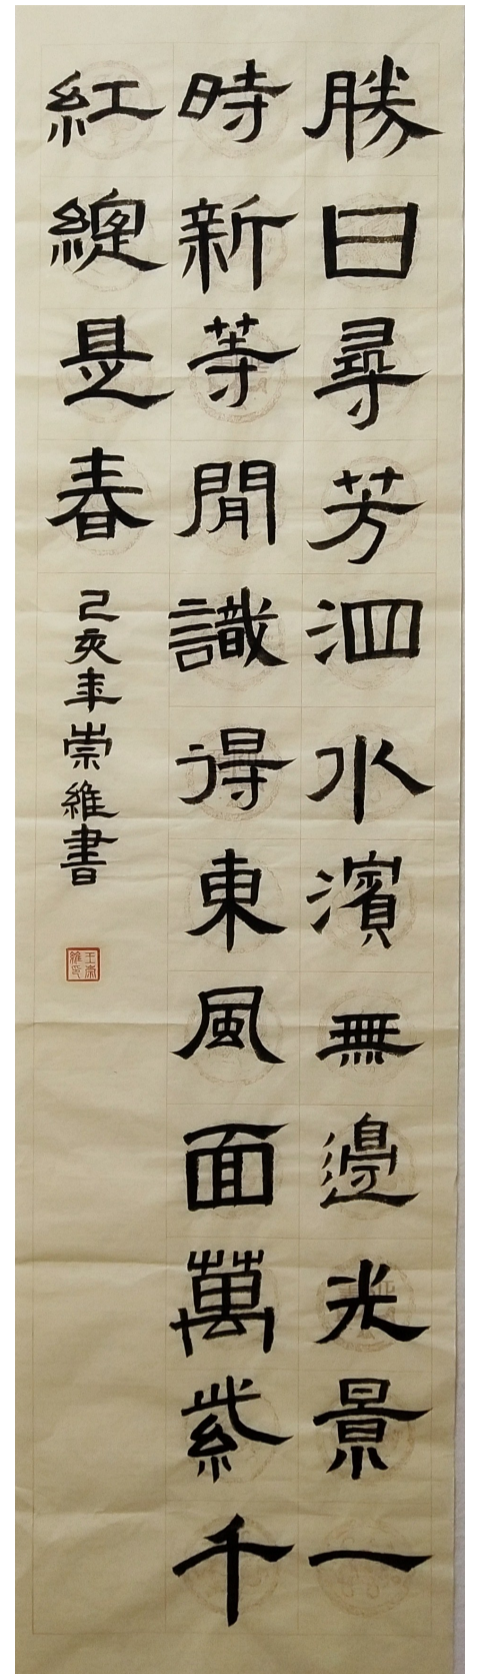 勝日尋芳泗水濱無邊光景一
時新等閒識得東風面萬紫千
紅總是春
己亥年崇維書
王崇
維印